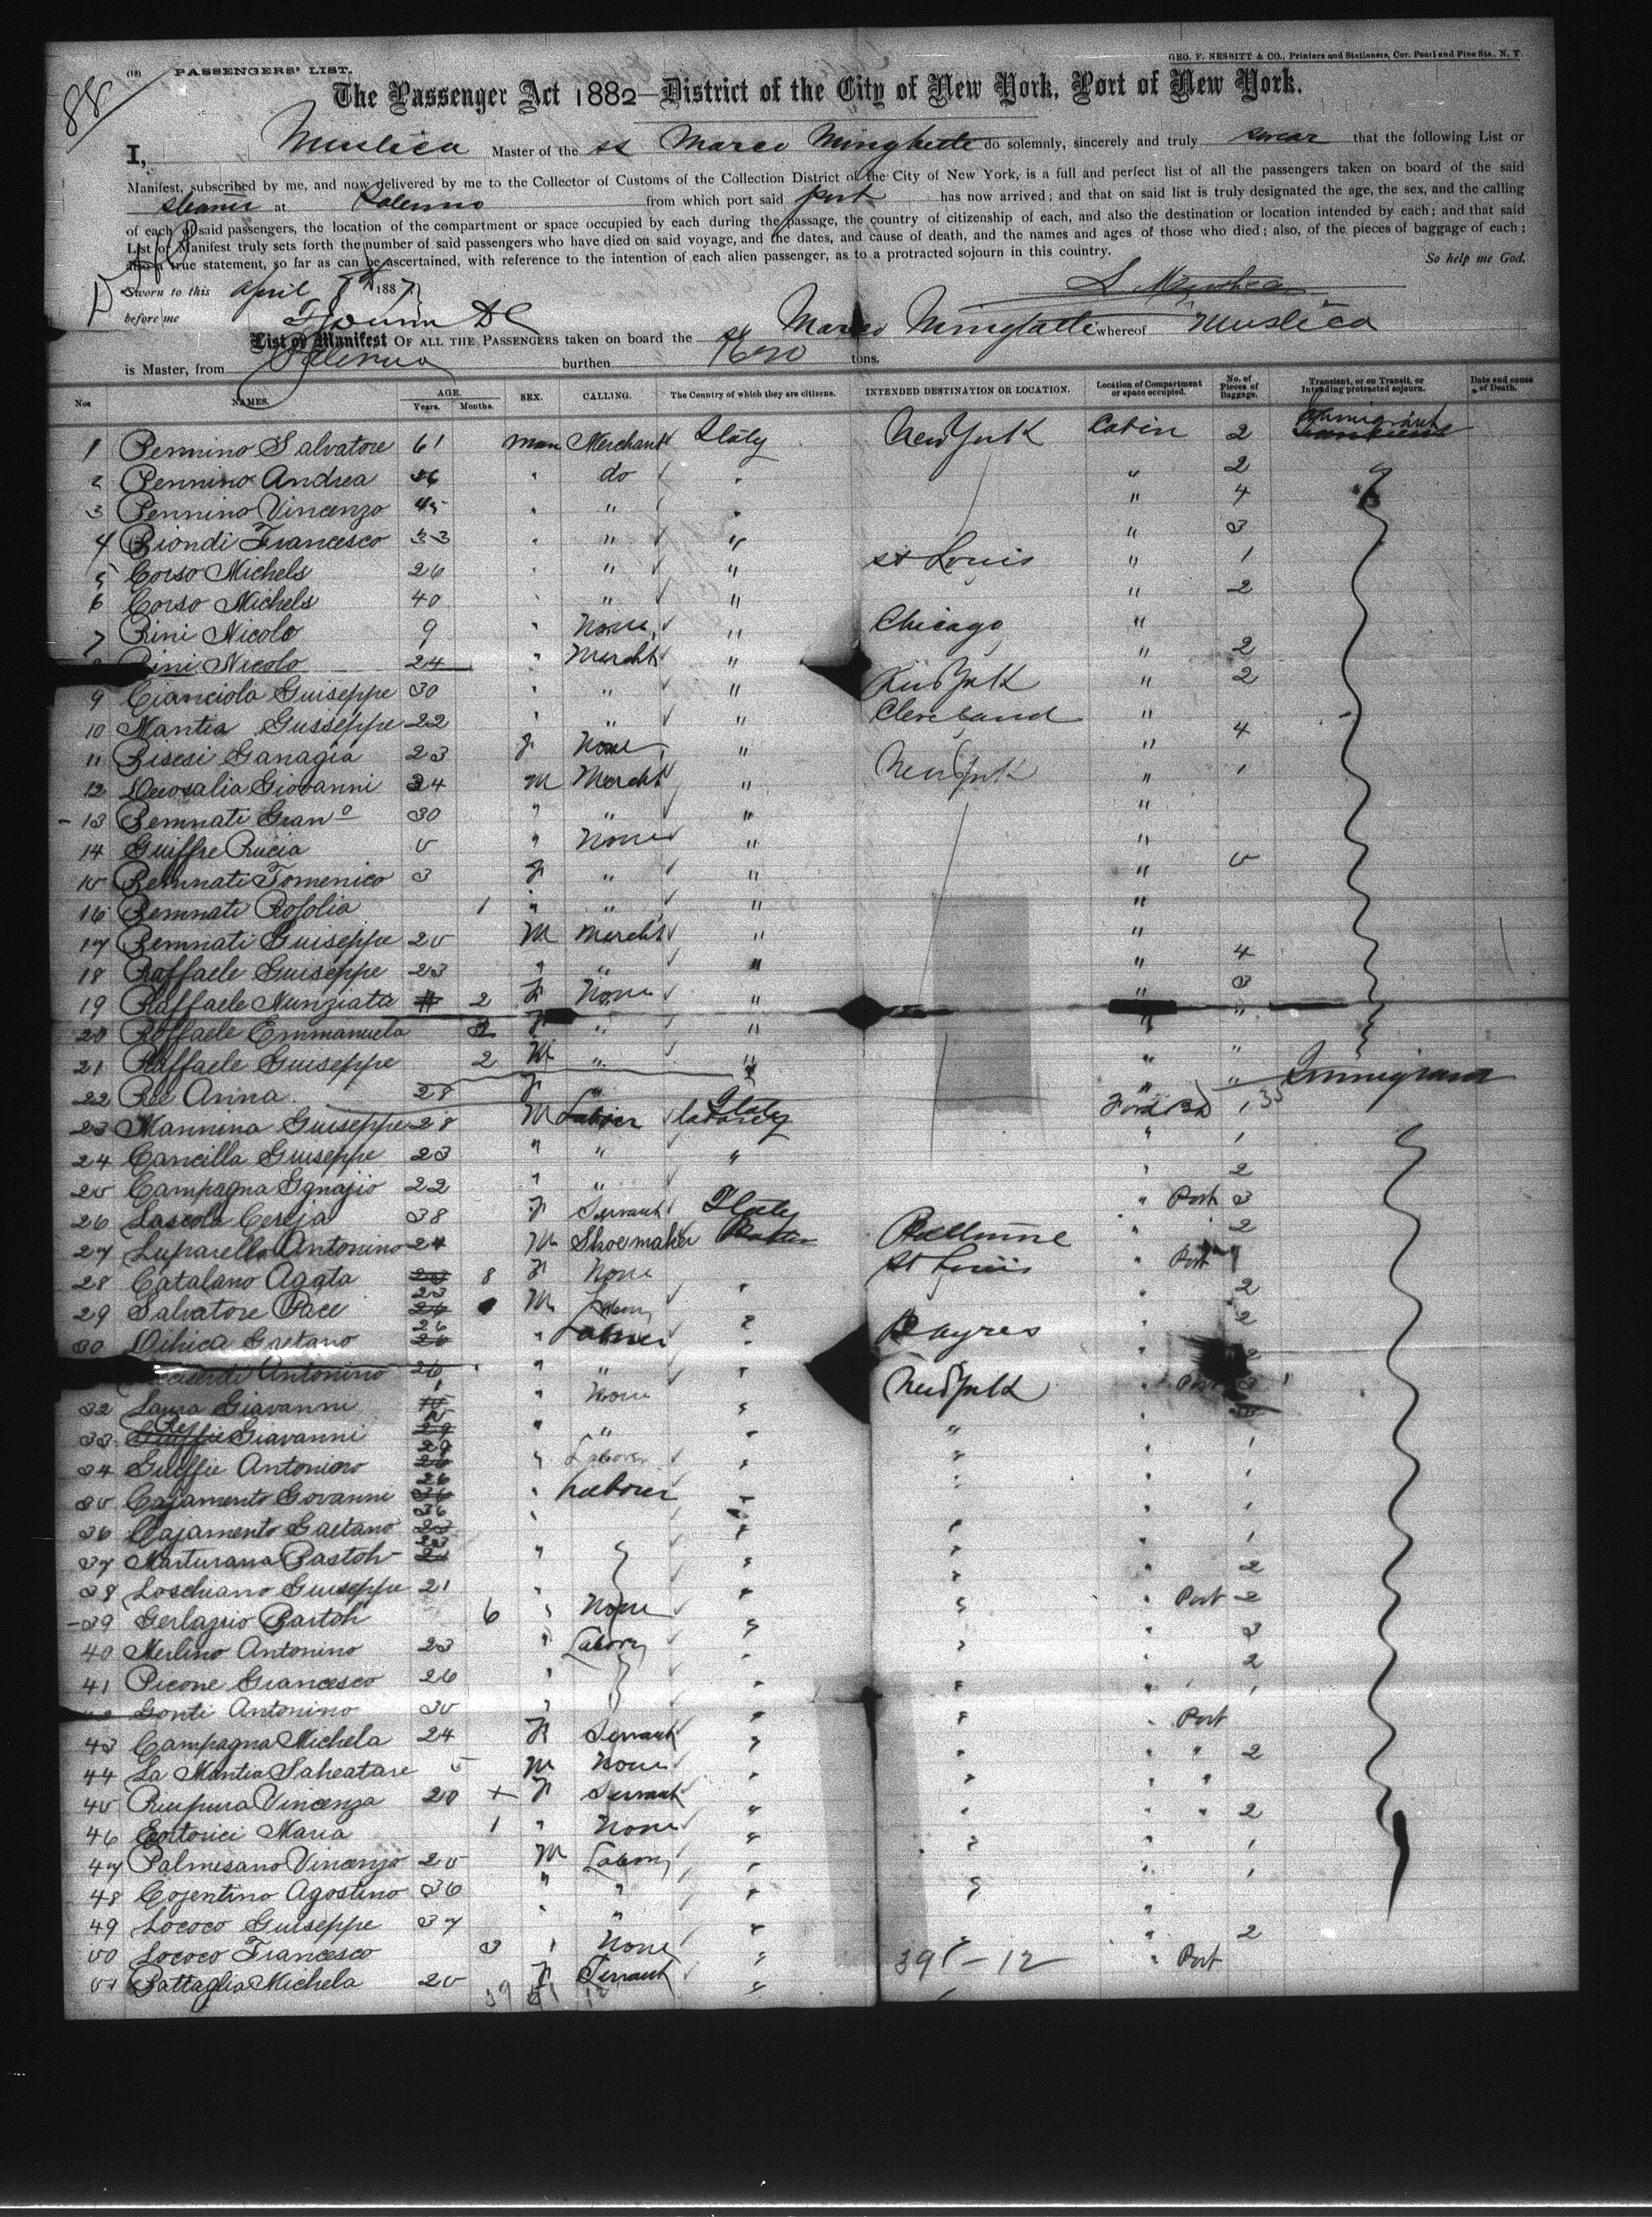 88
(12) PASSENGERS' LIST.
GEO. F. NESBITT & CO., Printers and Stationers, Cor. Pearl and Pine Sts., N. Y.
The Passenger Act 1882—District of the City of New York, Port of New York.
I, Muslica Master of the ss Marco Minghette do solemnly, sincerely and truly swear that the following List or
Manifest, subscribed by me, and now delivered by me to the Collector of Customs of the Collection District of the City of New York, is a full and perfect list of all the passengers taken on board of the said
steamer at Palermo from which port said port has now arrived; and that on said list is truly designated the age, the sex, and the calling
of each of said passengers, the location of the compartment or space occupied by each during the passage, the country of citizenship of each, and also the destination or location intended by each; and that said
List or Manifest truly sets forth the number of said passengers who have died on said voyage, and the dates, and cause of death, and the names and ages of those who died; also, of the pieces of baggage of each;
also a true statement, so far as can be ascertained, with reference to the intention of each alien passenger, as to a protracted sojourn in this country. So help me God.
Sworn to this April 8th 1887
before me
List or Manifest OF ALL THE PASSENGERS taken on board the ss Marco Minghatte whereof Muslica
is Master, from Palermo burthen tons.
Nos NAMES. AGE. Years. Months. SEX. CALLING. The Country of which they are citizens. INTENDED DESTINATION OR LOCATION. Location of Compartment or space occupied. No. of Pieces of Baggage. Transient, or on Transit, or Intending protracted sojourn. Date and cause of Death.
1 Pennino Salvatore 61 man Merchant Italy New York Cabin 2
2 Pennino Andrea 56 " do " " 2
3 Pennino Vincenzo 45 " " " " 4
4 Biondi Francesco 33 " " " " 3
5 Corso Michels 26 " " " St Louis " 1
6 Corso Michels 40 " " " " 2
7 Rini Nicolo 9 " None " Chicago "
Rini Nicolo 24 " Mercht " " 2
9 Cianciola Guiseppe 30 " " " New York " 2
10 Mantia Gusseppe 22 " " " Cleveland "
11 Bisesi Ganagia 23 F None " " 4
12 Giovanni 24 M Mercht " New York " 1
13 Bennati Gran° 30 " " " "
14 Guiffre Rucia 5 " None " "
15 Bennati Tomenico 3 F " " " 5
16 Bennati Rosolia 1 " " " "
17 Bennati Guiseppe 25 M Mercht " "
18 Raffaele Guiseppe 23 " " " " 4
19 Raffaele Nunziata 2 F None " " 3
20 Raffaele Emmanuela F " " "
21 Raffaele Guiseppe 2 M " " "
22 Re Anna 28 F " " " Immigrant
23 Mannina Guiseppe 28 M Labor Italy 1
24 Cancilla Guiseppe 23 " " " " 1
25 Campagna Ignazio 22 " " " 2
26 Lascola Cereza 38 F Servant Italy " Port 3
27 Luparello Antonino 24 M Shoemaker " 2
28 Catalano Agata 8 F None St Louis Port 1
29 Salvatore Pace 23 M " " 2
30 Gaetano 26 " Laborer " B Ayres " 2
Antonino 20 " " " New York " Port 3
32 Laura Giavanni 1 " None "
33 Giavanni " " " "
34 Guffie Antonioro 29 " Laborer " " " 1
35 Cajamento Govanni 26 " Laborer " " " 1
36 Cajamento Gaetano 36 " " " 1
37 Marturana Bastoh 23 " " " " 1
38 Loschiano Guiseppe 21 " " " " 2
39 Gerlazuo Bartoh 6 " None " " " Port 2
40 Merlino Antonino 23 " Labory " " " 3
41 Picone Giancesco 26 " " " " 2
Gonti Antonino 35 " " " " 1
43 Campagna Michela 24 F Servant " " " Port
44 La Mantia Saheatare 5 M None " " " " 2
45 Vincenza 20 + F Servant " " " "
46 Eortorici Maria 1 " None " " " " 2
47 Palmesano Vincenzo 25 M Labory " " " 1
48 Cozentino Agostino 36 " " " " " 1
49 Lococo Guiseppe 37 " " " "
50 Lococo Francesco 3 " None " " " 2
51 Battaglia Michela 25 F Servant " 39 - 12 " Port